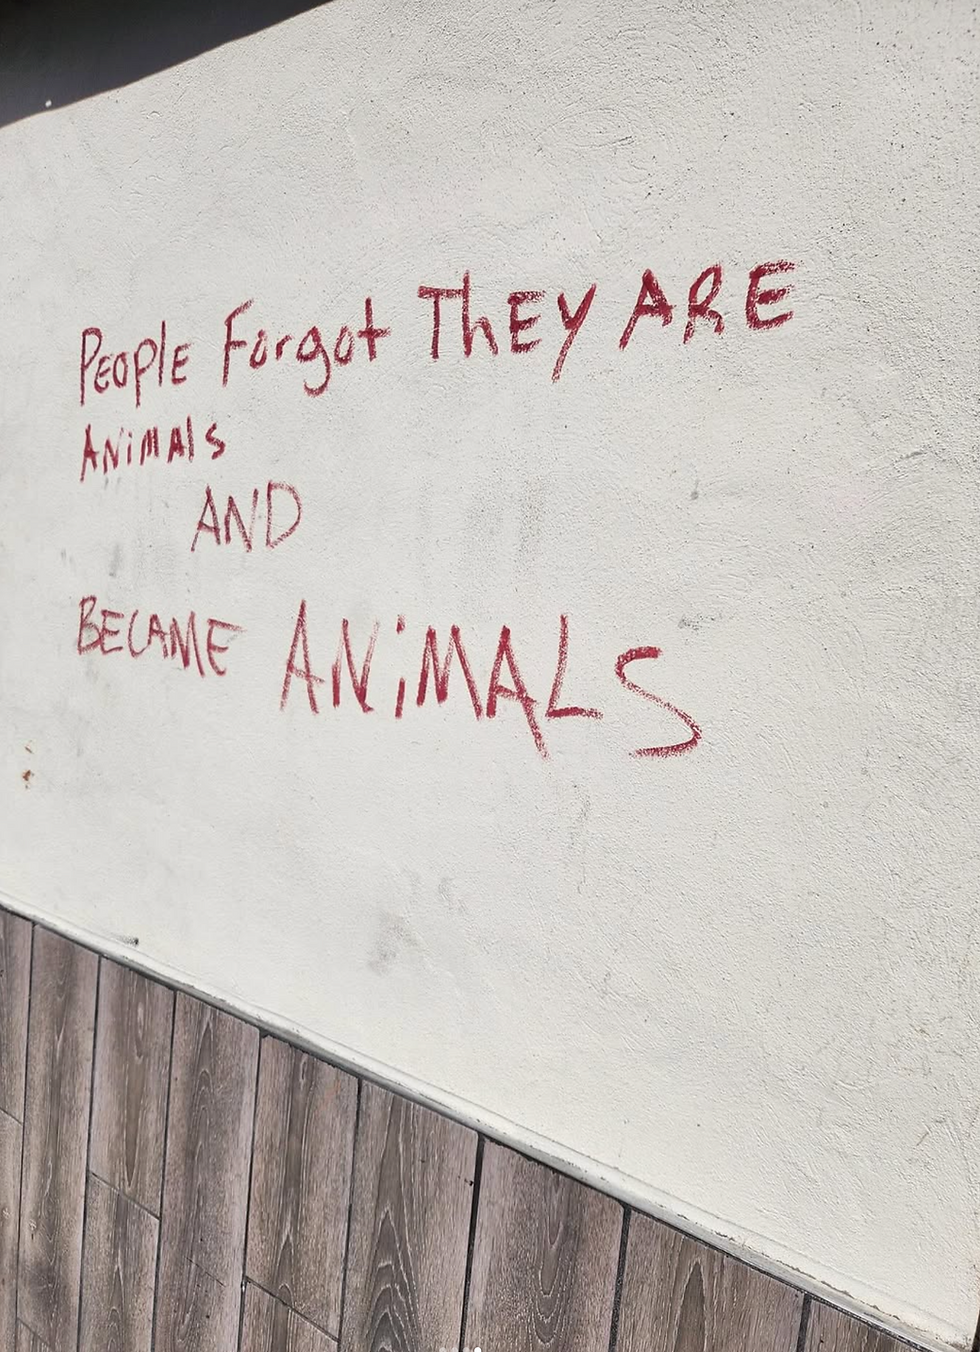 PEOPlE Forgot ThEy ARE
ANiMAlS
AND
BECAME ANiMALS